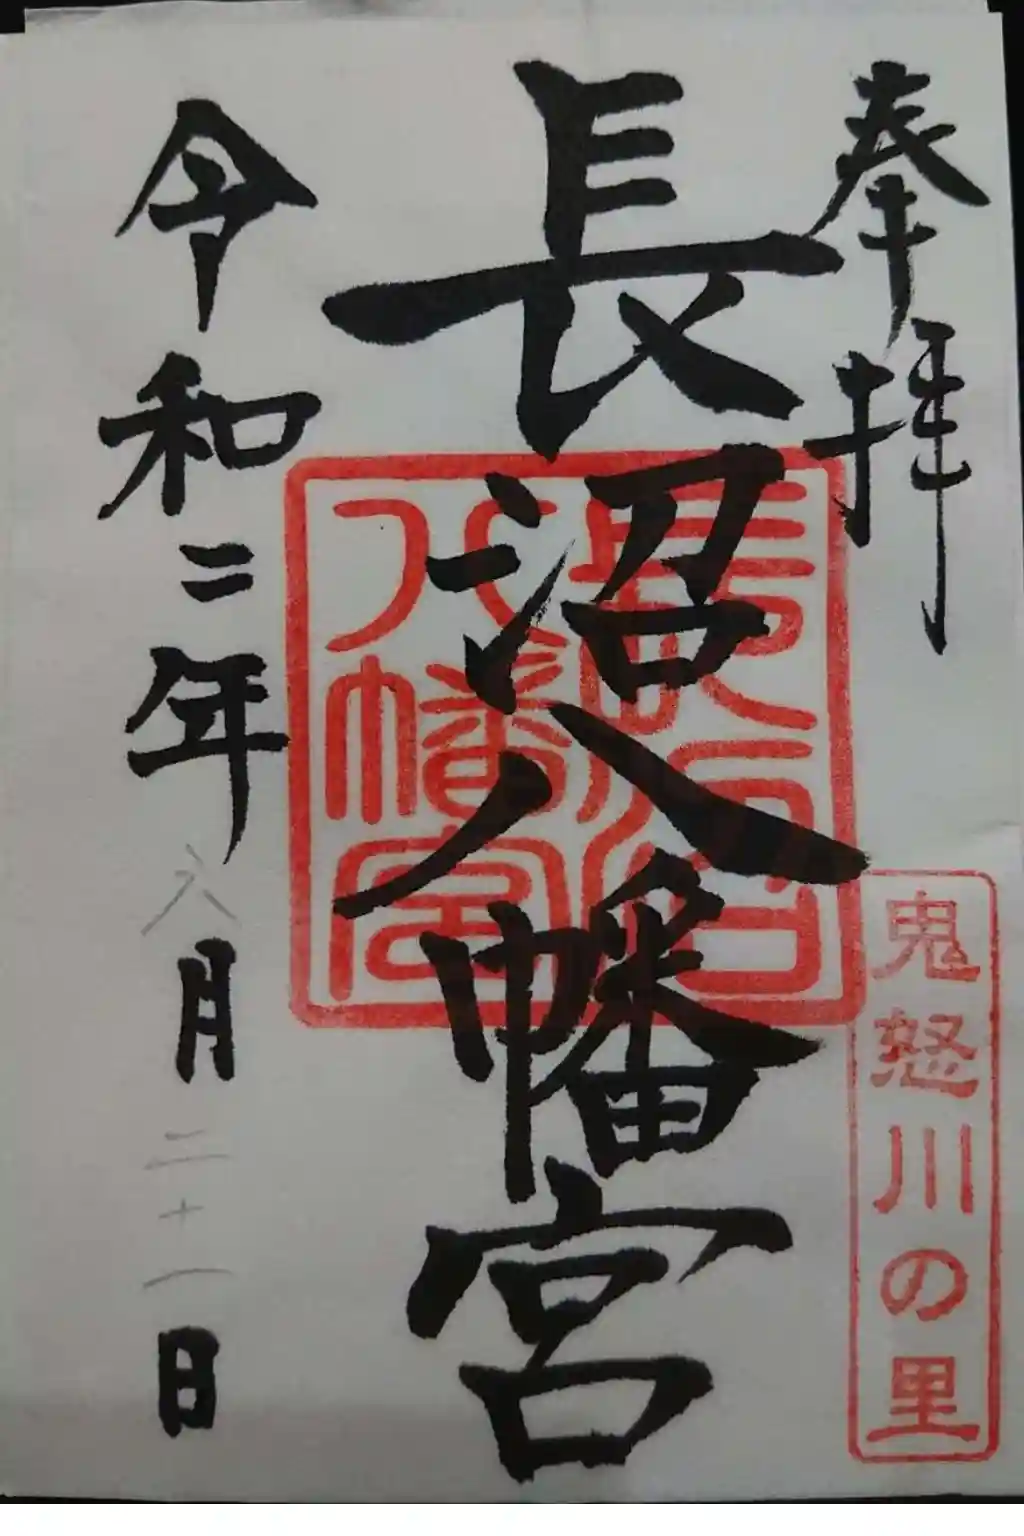 奉拝
鬼怒川の里
長沼八幡宮
長沼八幡宮
令和二年八月二十一日